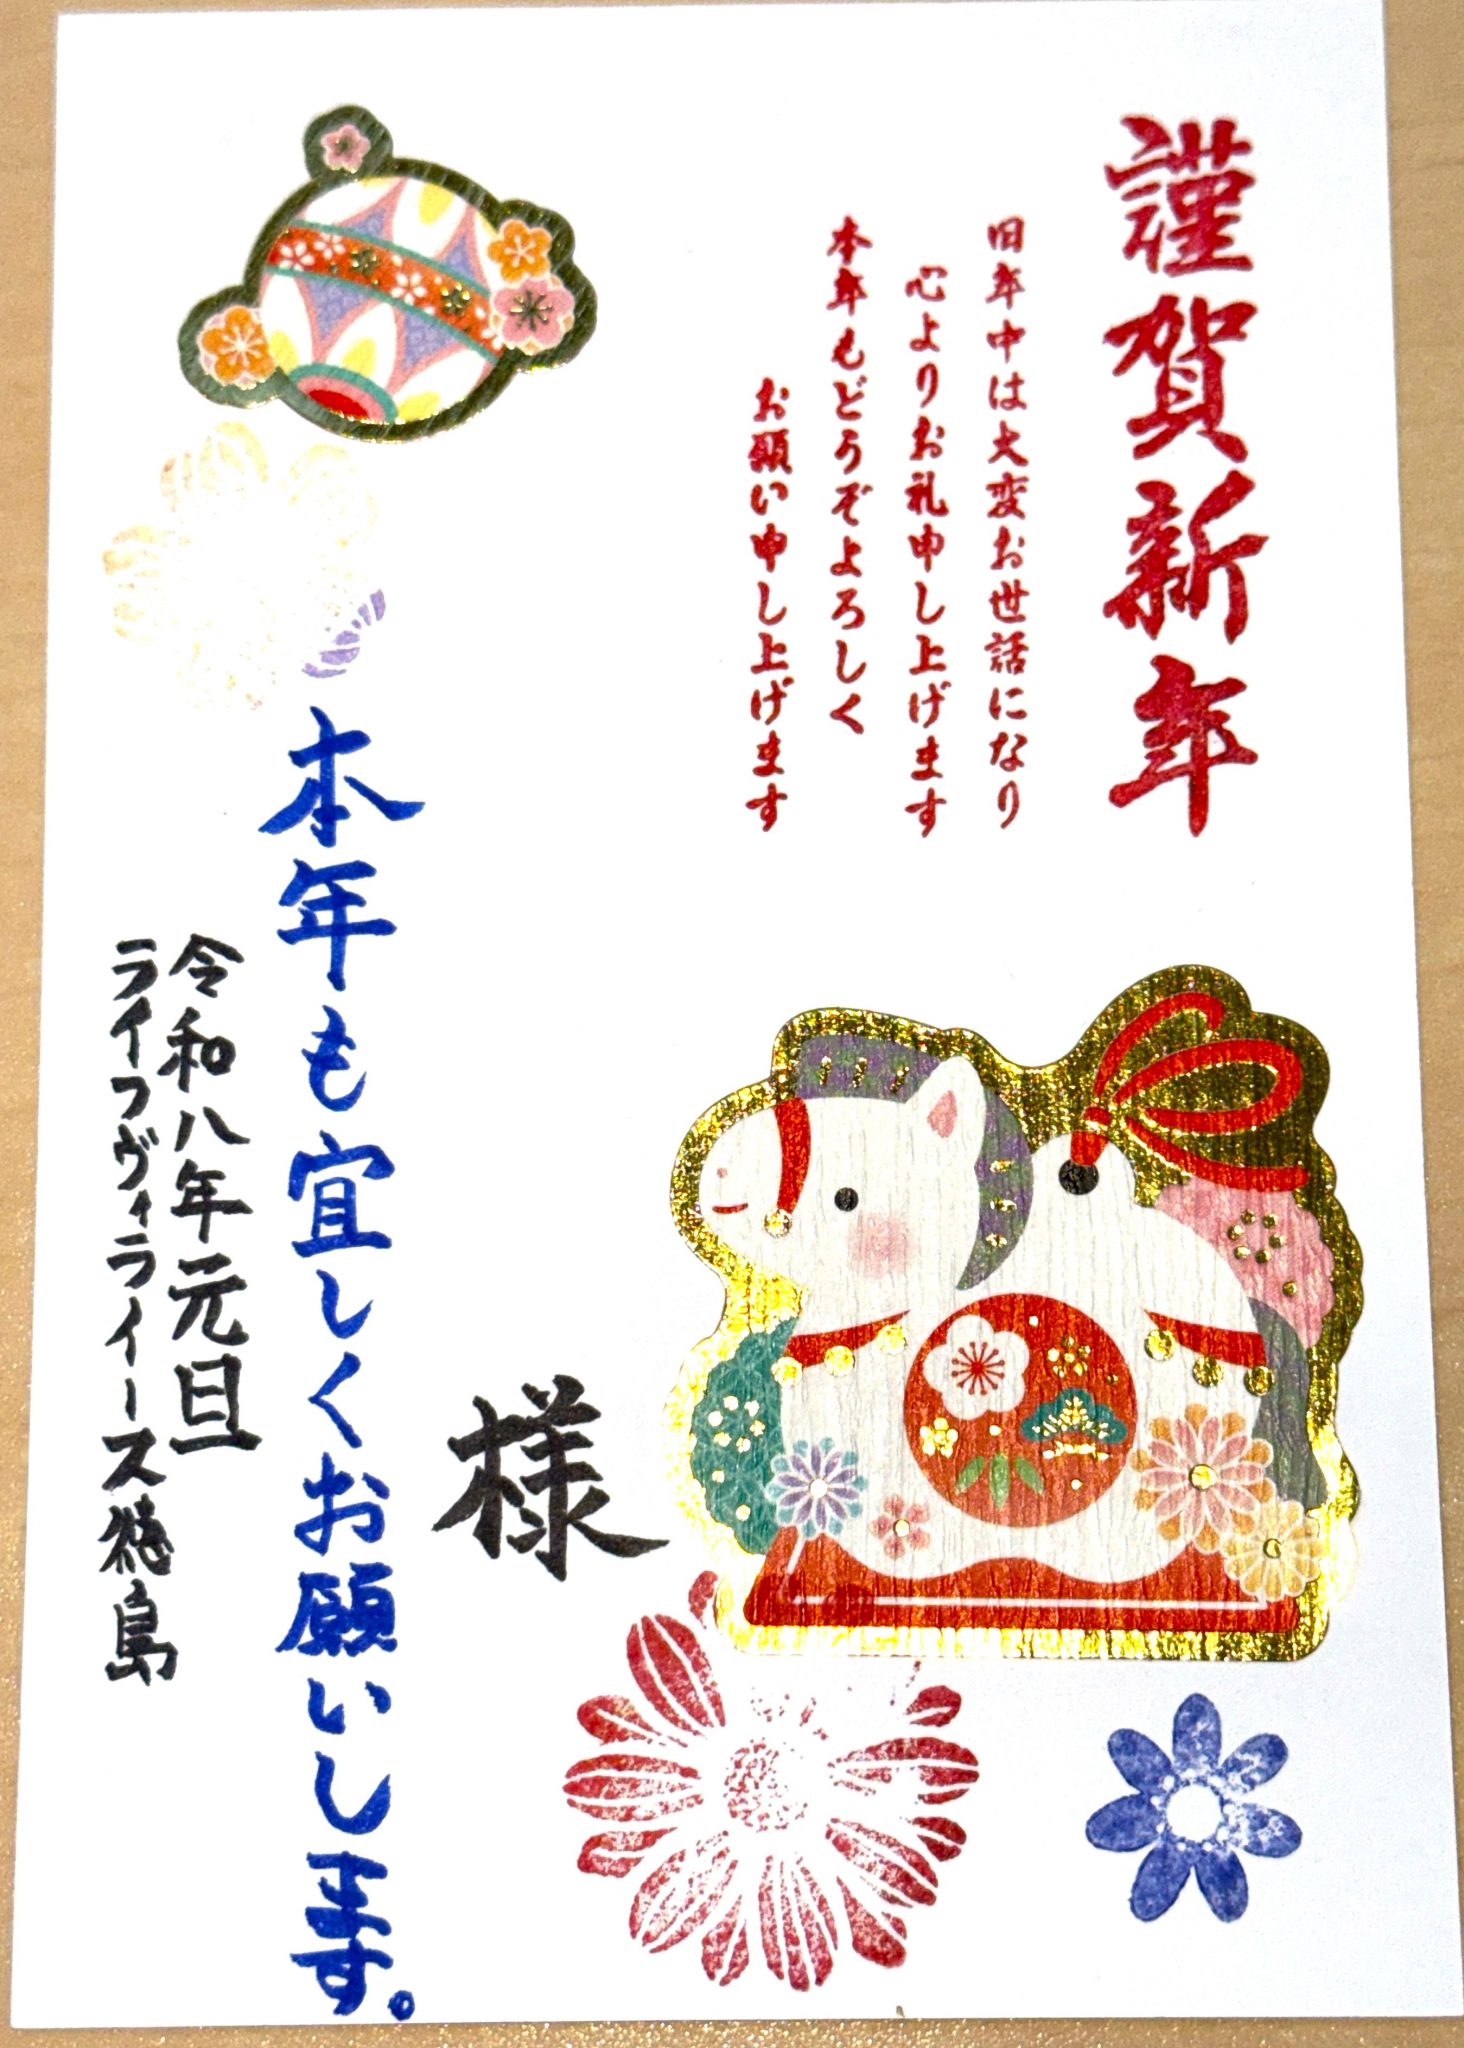 謹賀新年
旧年中は大変お世話になり
心よりお礼申し上げます
本年もどうぞよろしく
お願い申し上げます
様
本年も宜しくお願いします。
令和八年元旦
ライフヴィライース徳島